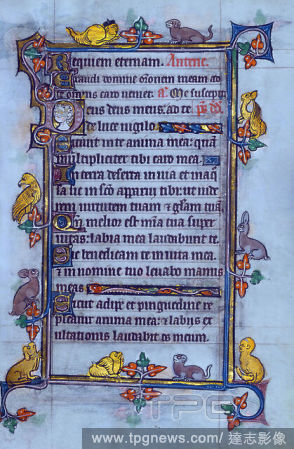 Requiem eternam. Antenē.
Exaudi domine orōnem meam ad
te omnis caro veniet. Me suscepit
Deus deus meus, ad te
de luce vigilo.
Sitivit in te anima mea: quā
multipliciter tibi caro mea.
In terra deserta in via et inaq̄
sa sic in scō apparui tibi: ut vide
rem virtutem tuam et gl'iam tuā.
Qm̄ melior est mīa tua super
vitas: labia mea laudabunt te.
Sic benedicam te in vita mea:
et in nomine tuo levabo manus
meas
Sicut adipe et pinguedine re
pleatur anima mea: et labiis ex
ultationis laudabit os meum.
TPG
www.tpgnews.com / 達志影像